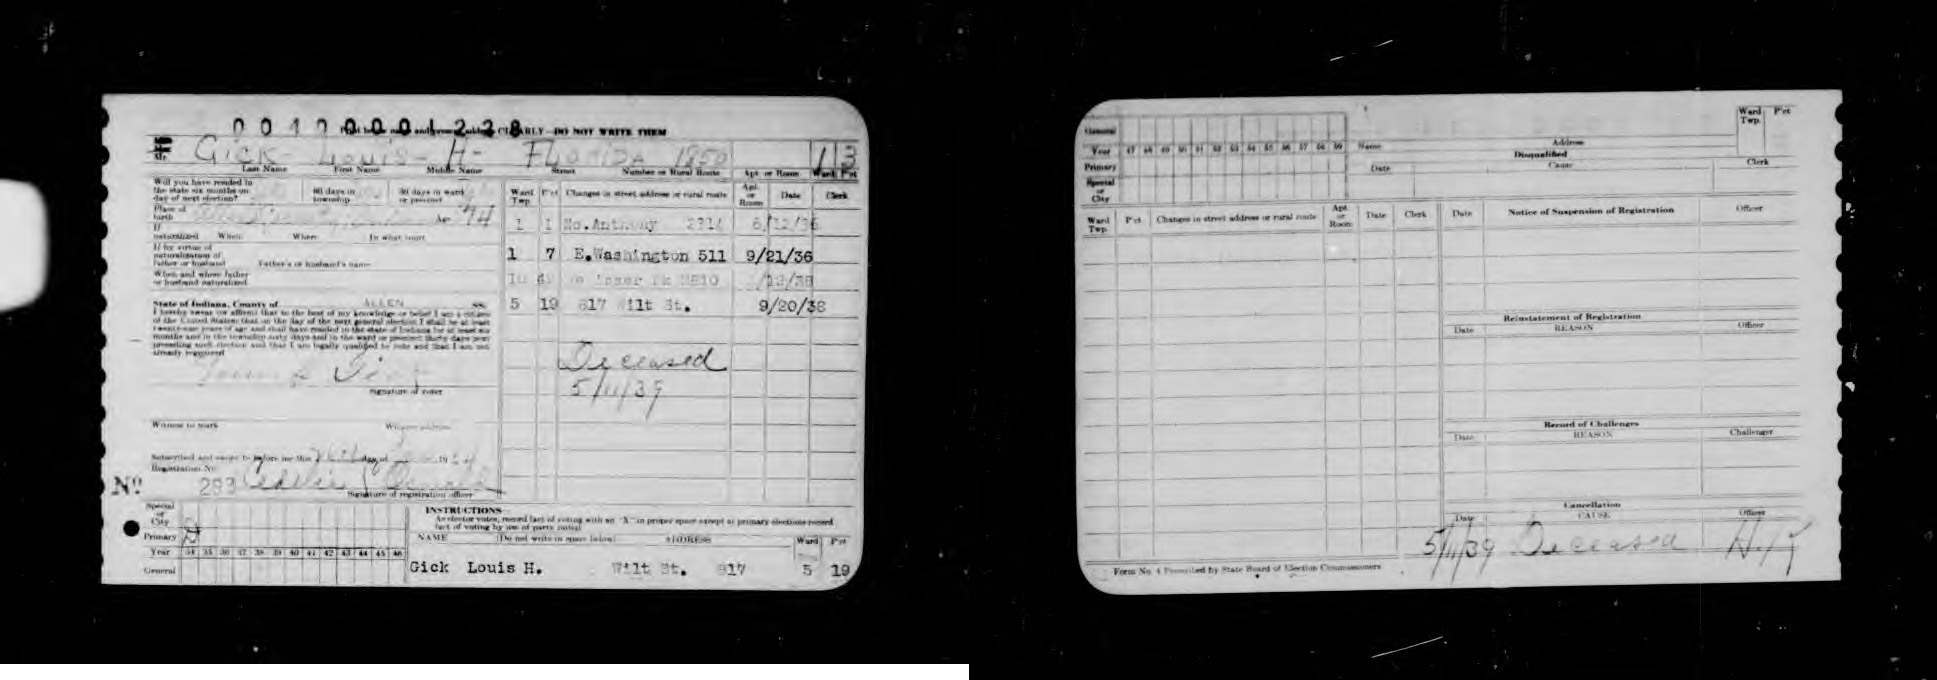 0010001228
CLEARLY—DO NOT WRITE THEM
GICK- LOUIS- H- FLORIDA 1850 1 3
Last Name First Name Middle Name Street Number or Rural Route Apt or Room Ward P'ct
Will you have resided in
the state six months on
day of next election?
60 days in
township
30 days in ward
or precinct
Ward
Twp.
P'ct
Changes in street address or rural route
Apt.
or
Room
Date
Clerk
Place of
birth
Age 44
1 1 No. Anthony
If
naturalized When Where In what court
If by virtue of
naturalization of
father or husband
Father's or husband's name
1 7 E.Washington 511 9/21/36
When and where father
or husband naturalized
State of Indiana, County of ALLEN ss.
5 19 817 Wilt St. 9/20/38
I hereby swear (or affirm) that to the best of my knowledge or belief I am a citizen
of the United States; that on the day of the next general election I shall be at least
twenty-one years of age and shall have resided in the state of Indiana for at least six
months and in the township sixty days and in the ward or precinct thirty days next
preceding such election and that I am legally qualified to vote and that I am not
already registered
Deceased
5/11/39
Signature of voter
Witness to mark
Witness address
Subscribed and sworn to before me this day of 19
Registration No.
No 293
Signature of registration officer
INSTRUCTIONS
An elector votes, record fact of voting with an "X" in proper space except at primary elections record
fact of voting by use of party initial
Special
or
City
Primary D
Year 34 35 36 37 38 39 40 41 42 43 44 45 46
General
NAME (Do not write in space below) ADDRESS Ward P'ct
Gick Louis H. Wilt St. 817 5 19
General
Year 47 48 49 50 51 52 53 54 55 56 57 58 59
Primary
Special
or
City
Name Address
Ward
Twp.
P'ct
Disqualified
Date Cause Clerk
Ward
Twp.
P'ct
Changes in street address or rural route
Apt.
or
Room
Date
Clerk
Date Notice of Suspension of Registration Officer
Reinstatement of Registration
Date REASON Officer
Record of Challenges
Date REASON Challenger
Cancellation
Date CAUSE Officer
5/11/39 Deceased
Form No. 4 Prescribed by State Board of Election Commissioners